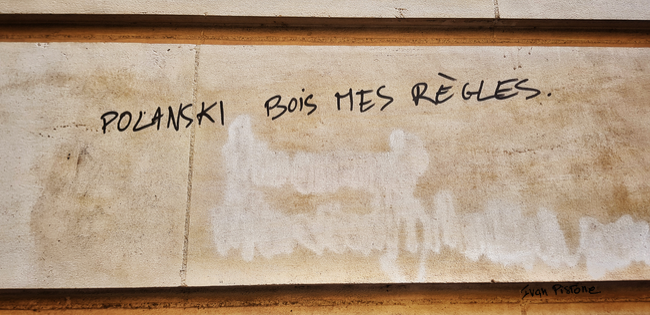 POLANSKI BOIS MES RÈGLES.
Ivan Pistone